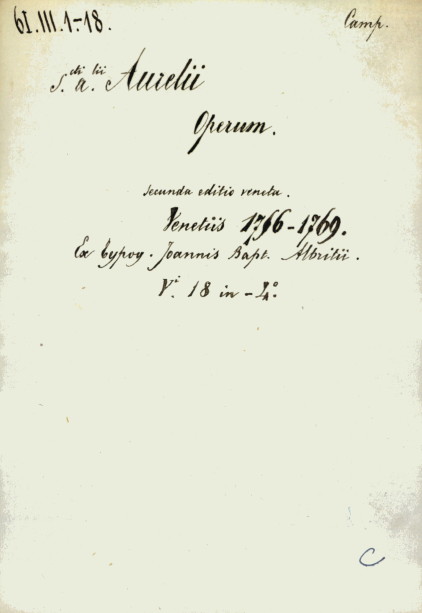 61.III.1-18.
Camp.
S.di a.lii Aurelii
Operum.
secunda editio veneta.
Venetiis 1756-1769.
Ex typog. Joannis Bapt. Albritii.
V.i 18 in-4o.
C